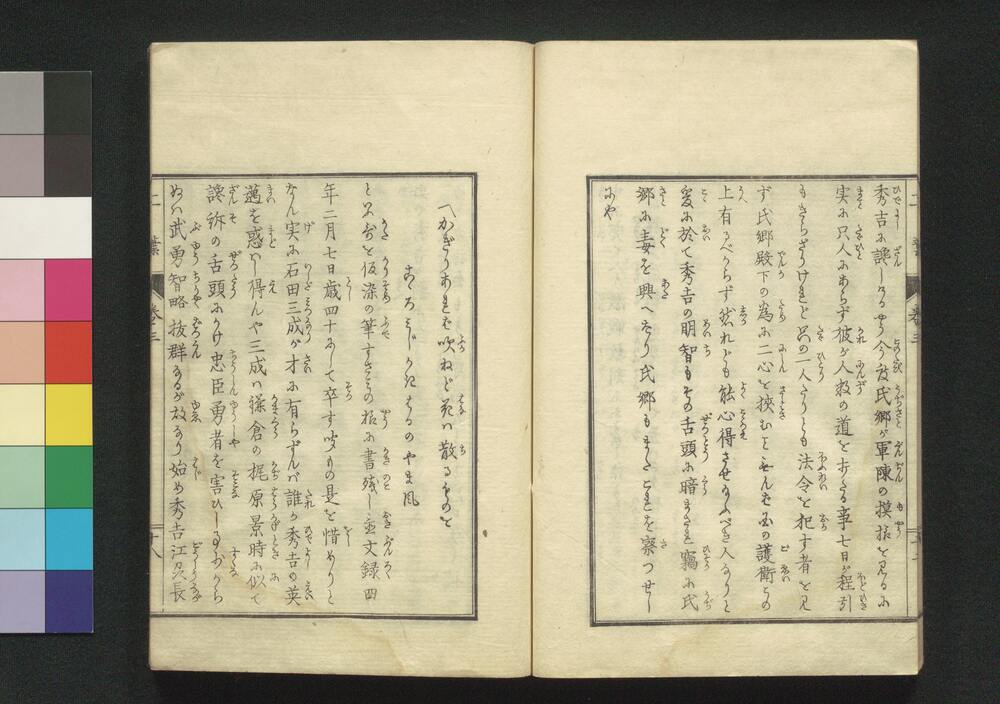 秀吉に讒しけるやう今度氏郷が軍陳の摸様を見るに
実に只人にあらず彼が人数の道を打たる事七日が程引
もきらざりけれど只の一人たりとも法令を犯す者を見
ず氏郷殿下の為に二心を挟むとせんも国の護衛との
上有べからず然れども能心得させ給ふべき人なりと
爰に於て秀吉の明智もその舌頭に暗まされ竊に氏
郷に毒を與へたり氏郷もまた是を察つせし
にや
かぎりあれば吹ねど花は散るものを
こゝろみじかきはるのやま風
とよみしを仮染の筆すさみの括に書残し文文録四
年二月七日歳四十にして卒す皆もの是を惜めりと
なん実に石田三成が才に有らずんば誰か秀吉の英
邁を惑はし得んや三成は鎌倉の梶原景時に似て
讒訴の舌頭にかけ忠臣勇者を害ひしも少からず
ぬは武勇智略抜群なるが故なり始め秀吉江州長
二葉
巻三
十八